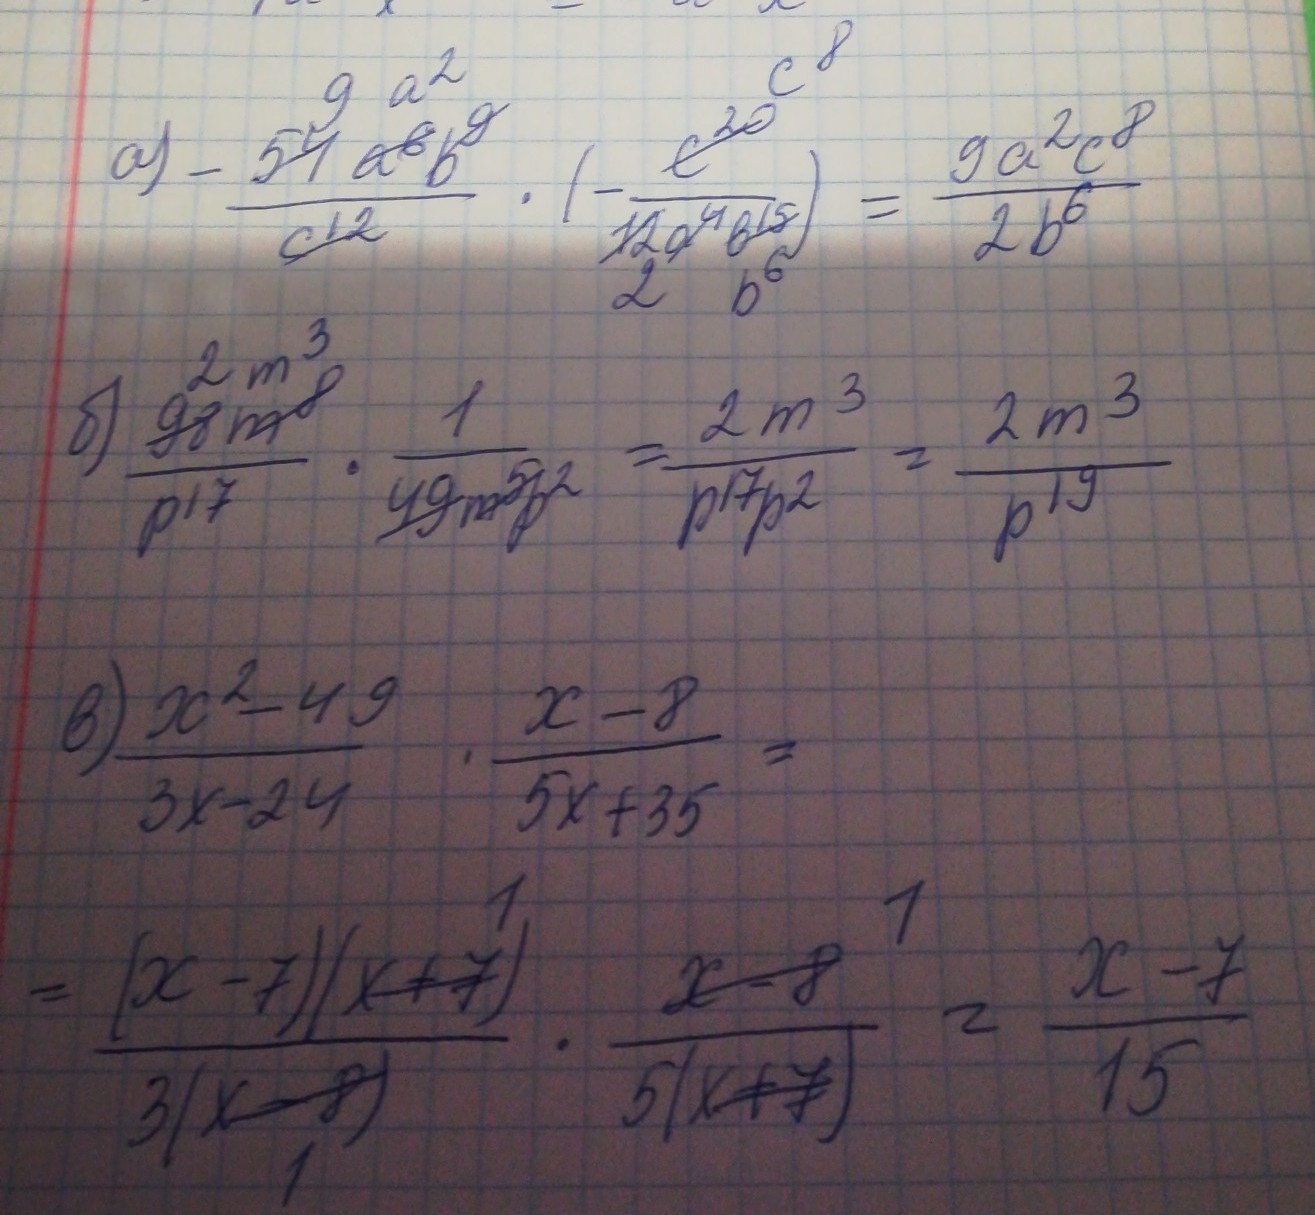 9 a² c⁸
а) - 54 a⁶b⁹ / c¹² · (- c²⁰ / 12a⁴b¹⁵) = 9a²c⁸ / 2b⁶
2 b⁶
2 m³
б) 98m⁸ / p¹⁷ · 1 / 49m⁵p² = 2m³ / p¹⁷p² = 2m³ / p¹⁹
в) x² - 49 / 3x - 24 · x - 8 / 5x + 35 =
1 1
= (x - 7)(x + 7) / 3(x - 8) · x - 8 / 5(x + 7) = x - 7 / 15
1